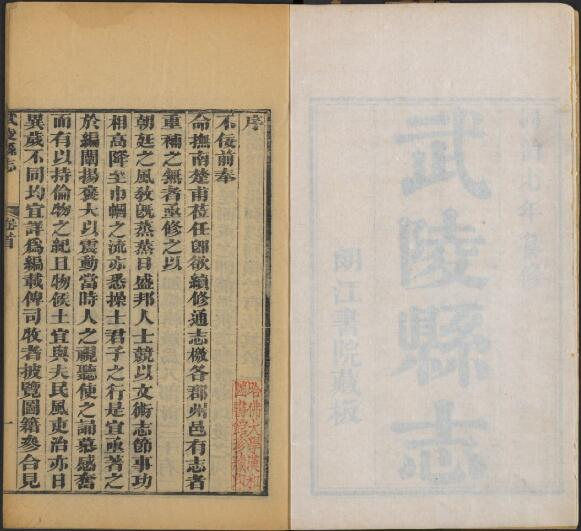 武陵縣志
朗江書院藏板
序
不佞前奉
命撫南楚甫莅任卽欲續修通志檄各郡州邑有志者
重補之無者亟修之以
朝廷之風教旣蒸蒸日盛邦人士競以文術志節事功
相高降至巾幗之流亦悉操士君子之行是宜亟著之
於編闡揚褒大以震動當時人之視聽使之誦慕感奮
而有以持倫物之紀且物候土宜與夫民風吏治亦日
異歲不同均宜詳爲編載俾司牧者披覽圖籍參合見
武陵縣志
卷首
一
哈佛大學漢和
圖書館珍藏印